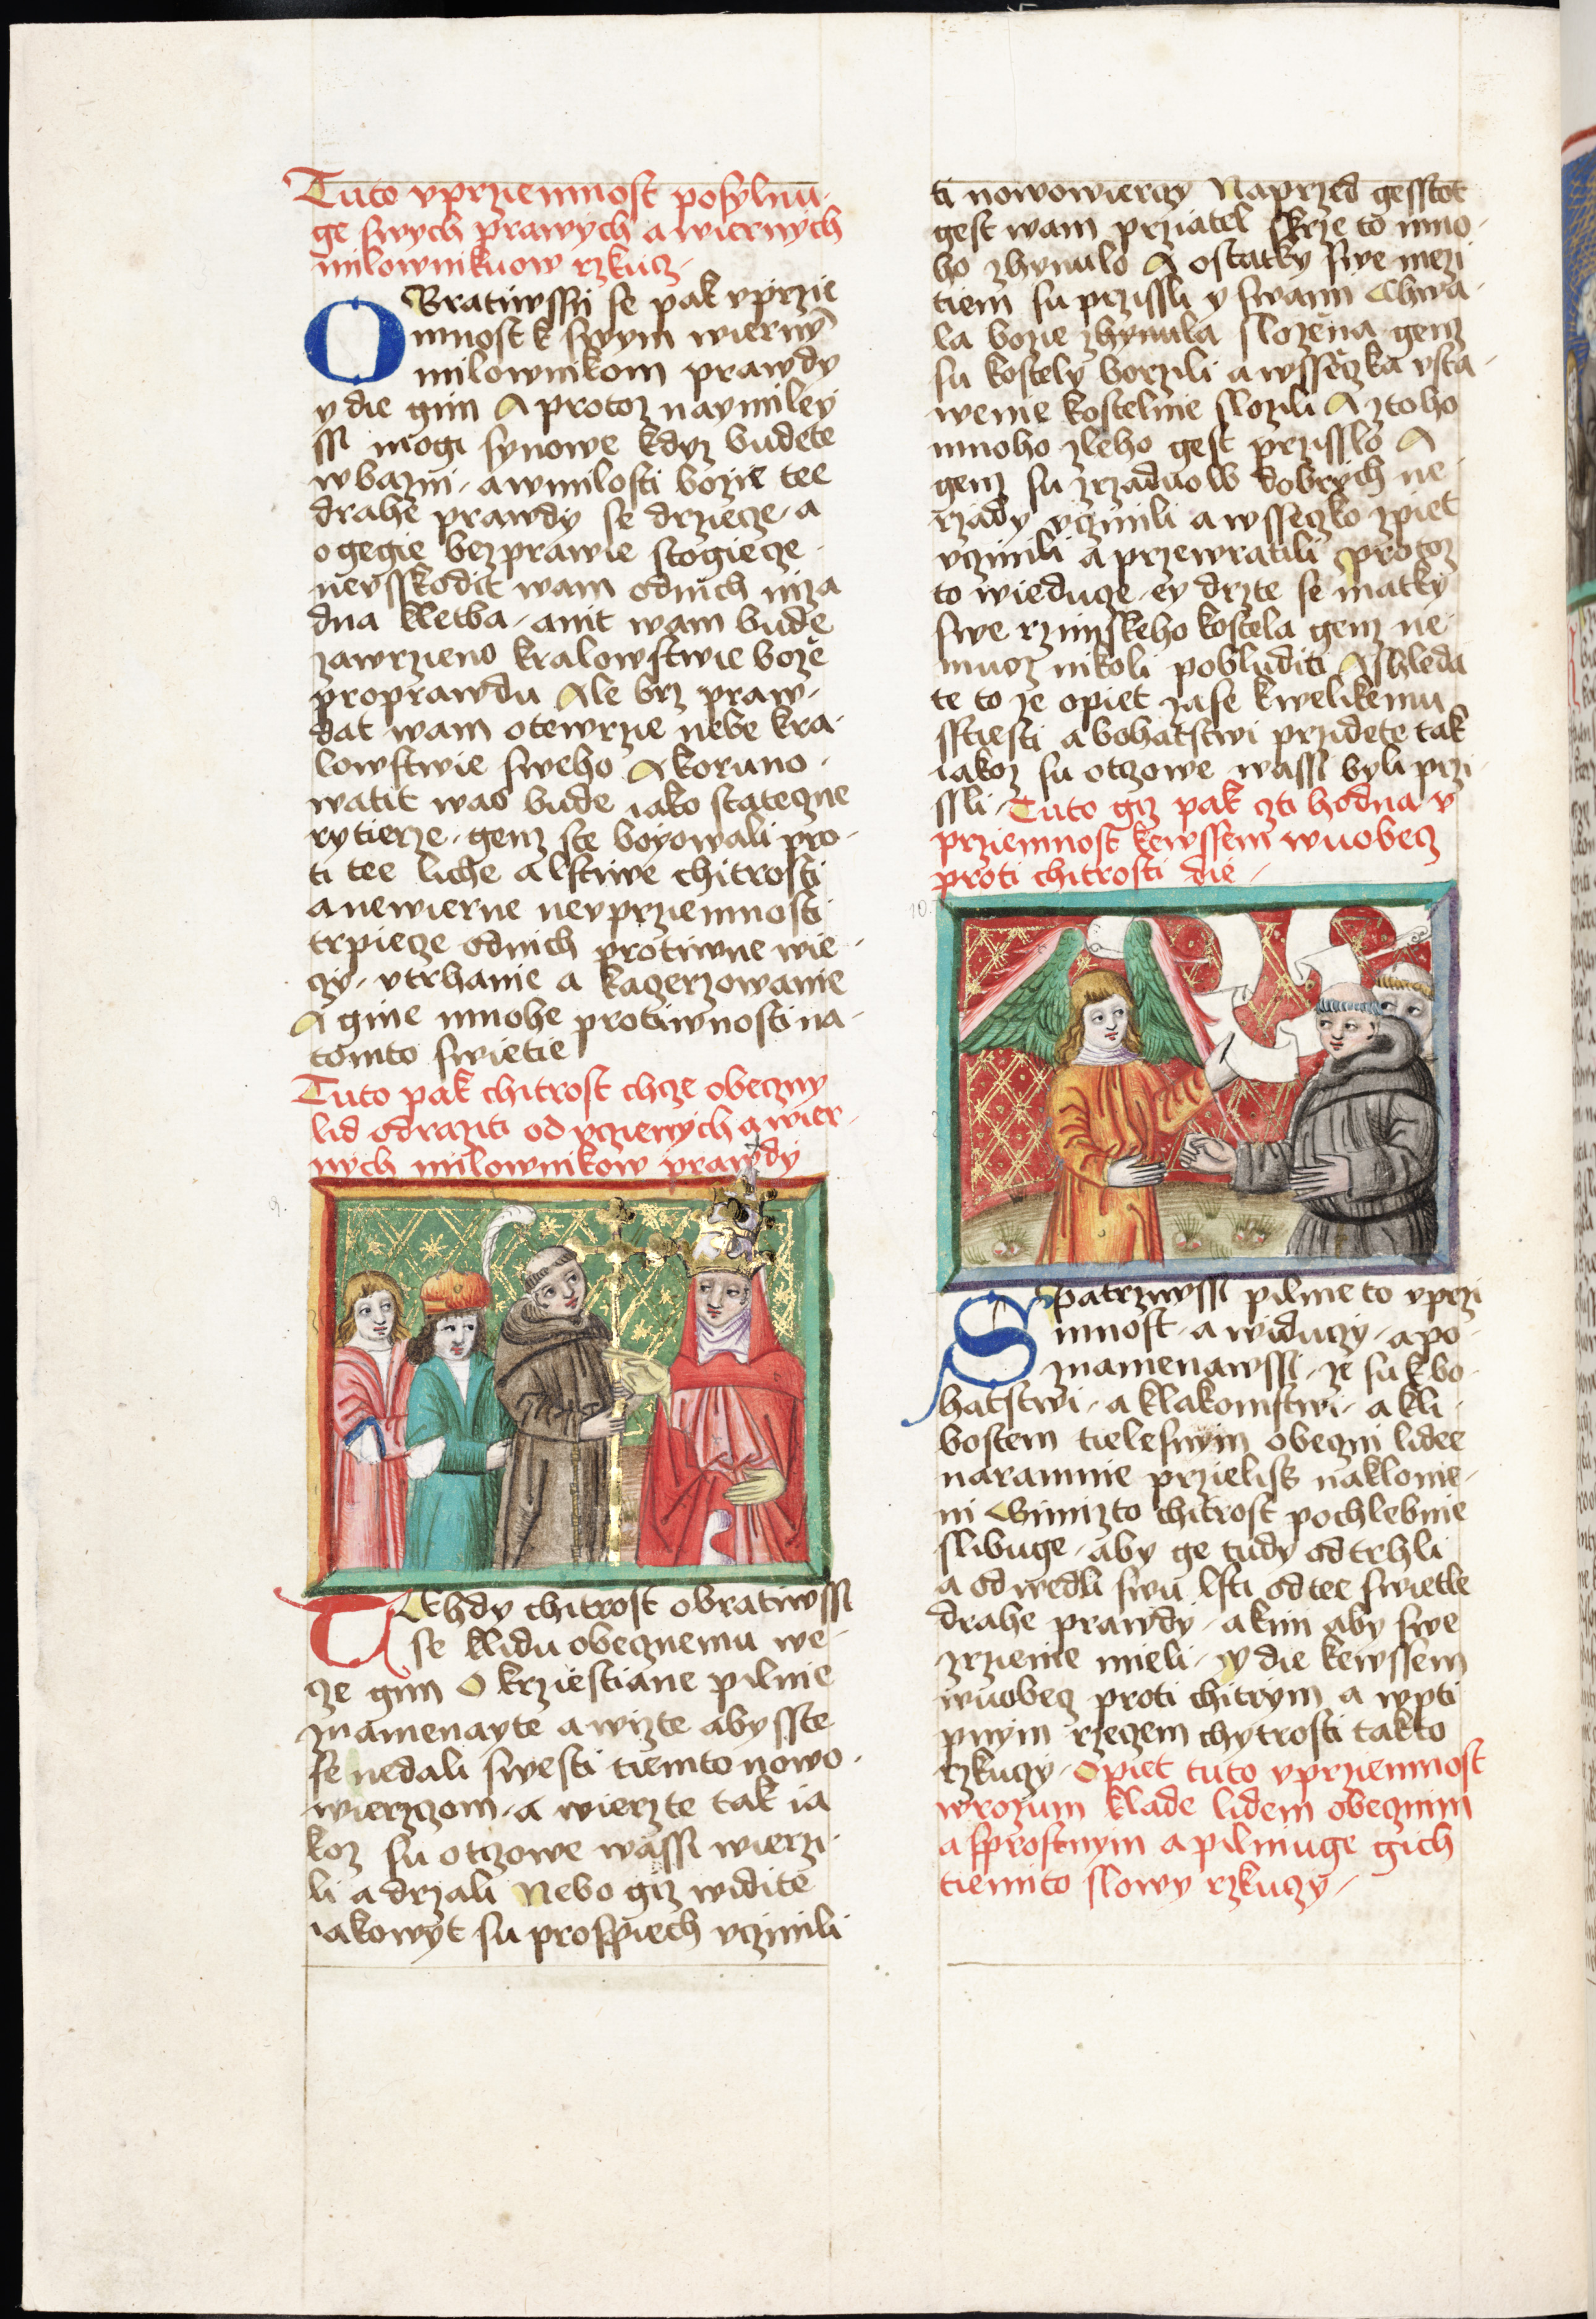 Tuto vprziemnost posylnu-
ge swych prawych a wiernych
milownikuow rzkucz-
OBratiwssii se pak vprzie
mnost k swym wierny
milownikom prawdy
y die gim A protoz naymiley
ssi mogi synowe kdyz budete
w bazni - a w milosti bozie tee
drahe prawdy se drziecze - a
o gegie bezprawie stogiecze -
nevsskodit wam od nich niza
dna kletba - anit wam bude
zawrzieno kralowstwie boze
pro prawdu Ale brz praw-
dat wam otewrzie nebe kra-
lowstwie sweho A koruno-
watit was bude iako stateczne
rytierze - genz ste boyowali pro-
ti tee liche a lstiwe chitrosti
a newierne nevprziemnosti
trpiecze od nich protiwne wie-
czy - vtrhanie a kaczerzowanie
A gine mnohe protiwnosti na-
tomto swietie
Tuto pak chitrost chcze obeczny
lid odraziti od vcziwych a wier-
nych milownikow prawdy
9.
TEhdy chitrost obratiwssi
se k lidu obecznemu we-
cze gim O krziestiane pilnie
znamenayte a wizte abysste
se nedali swesti tiemto nowo-
wierzczom - a wierzte tak ia
koz su otczowe wassi wierzi-
li a drzali Nebo giz widite
iakowyt su prospiech vczinili
ti nowowierczy Naprzed gesstot
gest wam prziatel skrze to mno-
ho zhynulo A ostatky swe mezi
tiem su przissli y swami Chwa-
la bozie zhynula slozena genz
su kostely borzili a wsseczka vsta-
wenie kostelnie slozili A z toho
mnoho zleho gest przisslo A
genz su z rzaduow dobrych ne-
rzady vczinili a wsseczko zpiet
vczinili a przewratili protoz
to wieducze - ey drzte se matky
swe rzimskeho kostela genz ne-
muoz nikoli pobluditi A shleda
te to ze opiet zase k welikemu
sstiesti a bohatstwi przidete tak
iakoz su otczowe wassi byli przi-
ssli - Tuto giz pak czti hodna v
prziemnost ke wssem wuobecz
proti chitrosti die -
10.
SPatrziwssi pilnie to vprzi
mnost - a widuczy - a po-
znamenawssi - ze su k bo-
hatstwi - a k lakomstwi - a k li-
bostem tielesnym obeczni lidee
naramnie przielis naklonie-
ni Gimizto chitrost pochlebnie
slibuge - aby ge tudy odtrhli
a odwedli swu lsti od tee swietle
drahe prawdy - a k nim aby swe
zrzienie mieli - y die ke wssem
wuobecz proti chitrym a wpti
pnym rzeczem chytrosti takto
rzkuczy - Opiet tuto vprziemnost
w rozum klade lidem obecznim
a sprostnym a pilniuge gich
tiemito slowy rzkuczy -